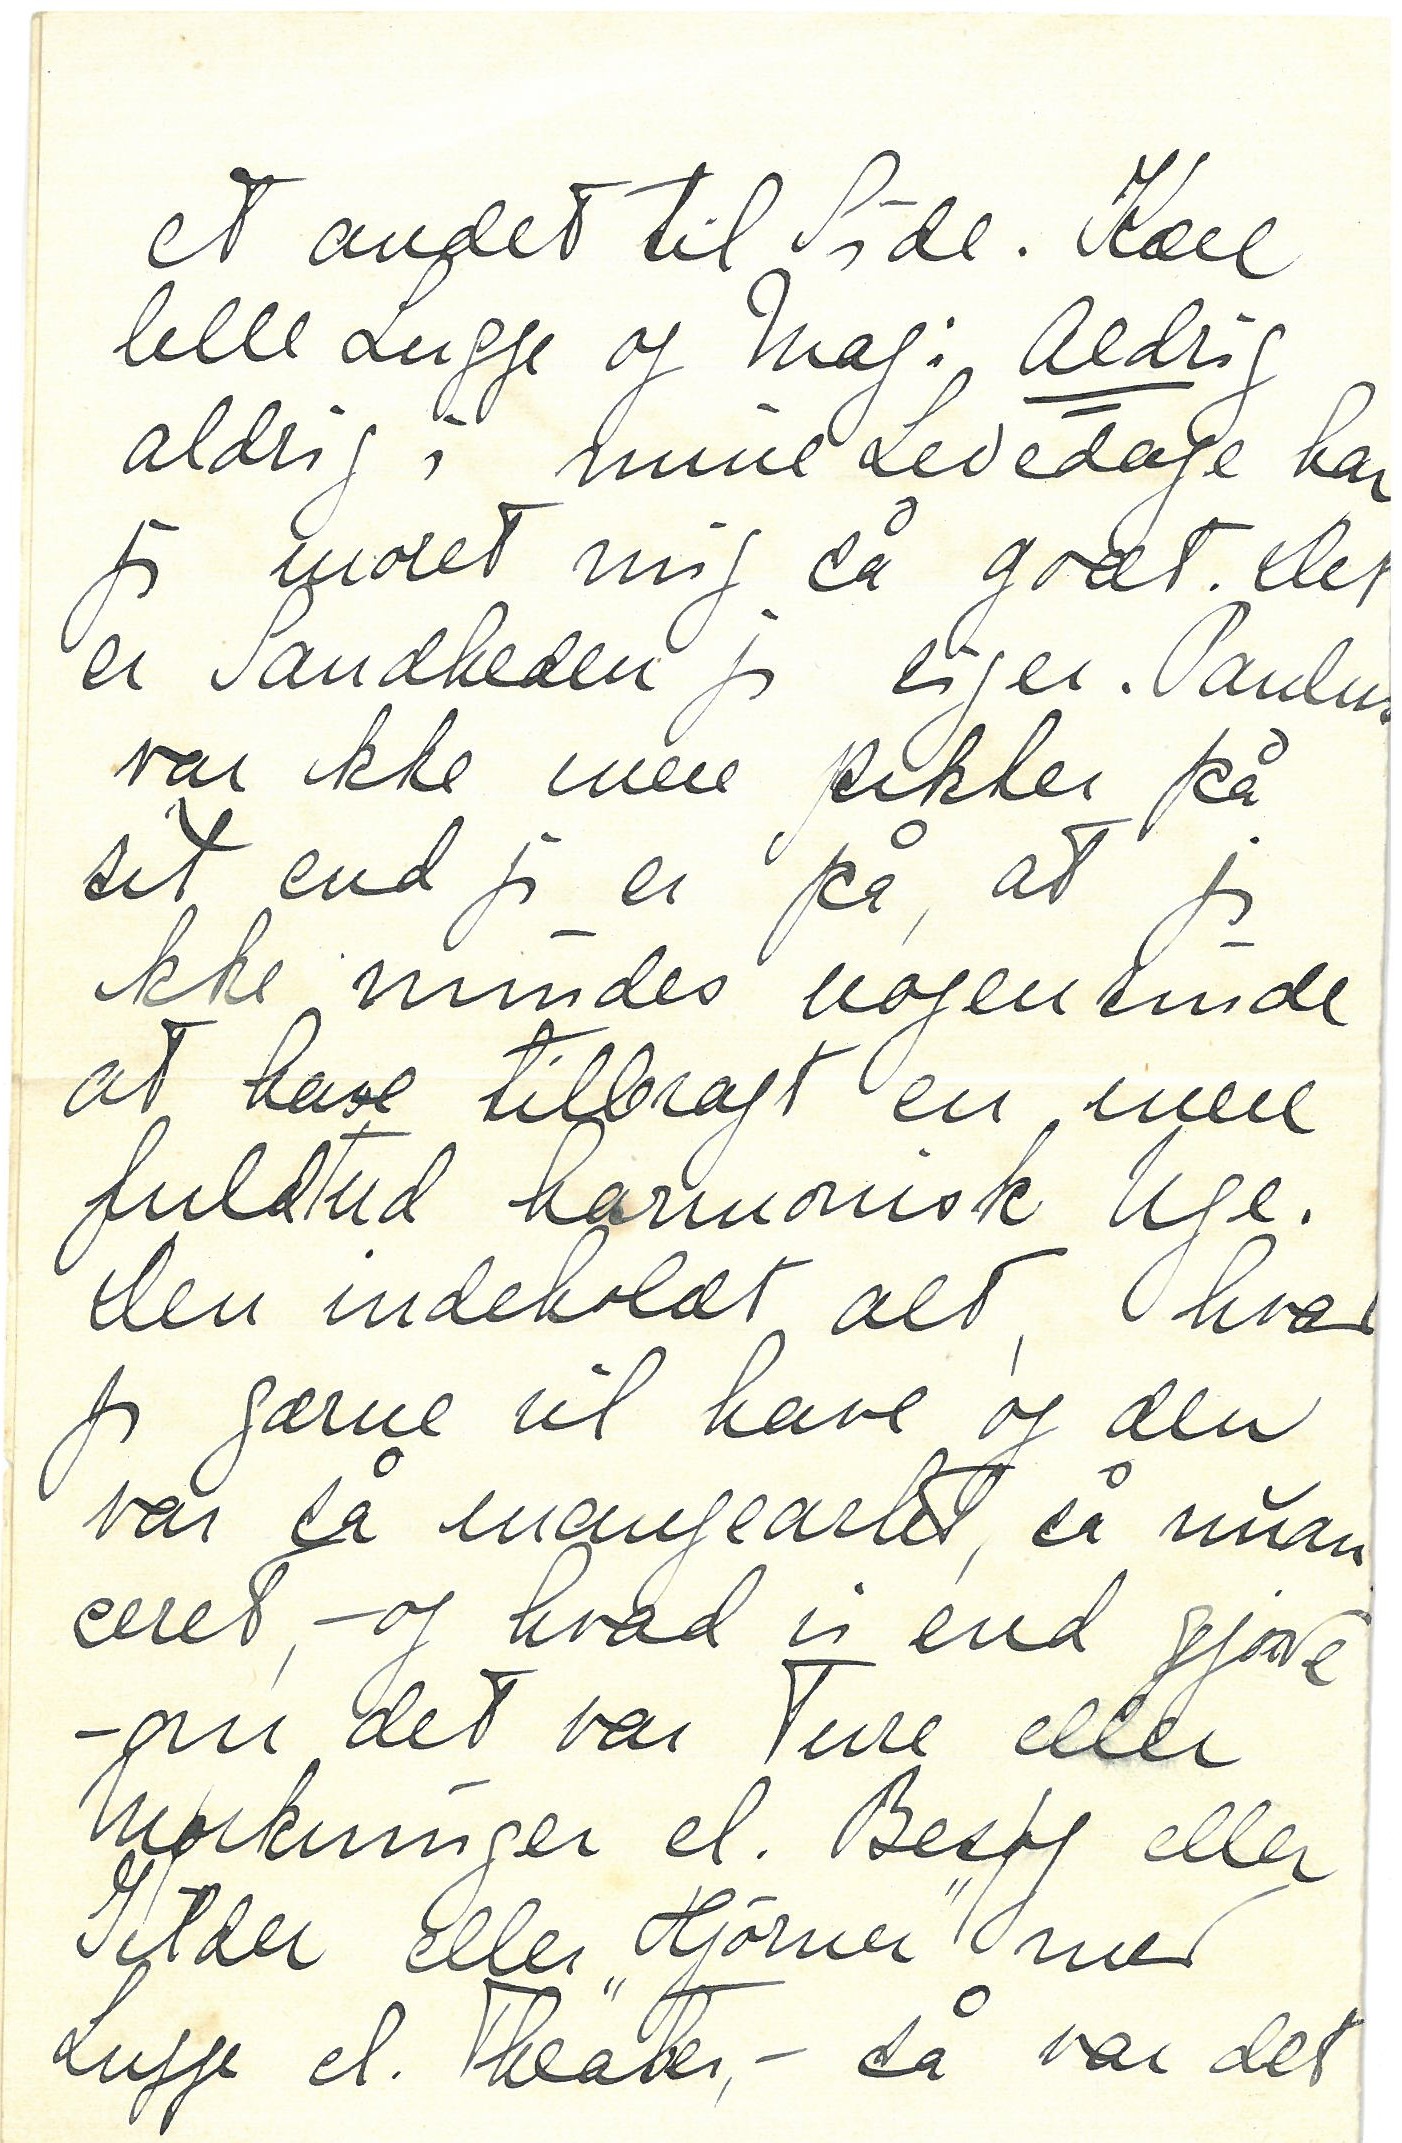 et andet til Side. Kære
lille Lugge og Mag: Aldrig
aldrig i mine Levedage har
jeg moret mig så godt. Det
er Sandheden jeg siger. Paulus
var ikke mere sikker på
sit end jeg er på, at jeg
ikke mindes nogensinde
at have tilbragt en mere
fuldtud harmonisk Uge.
Den indeholdt alt, hvad
jeg gærne vil have og den
var så mangeartet, så nŭan
ceret, – og hvad vi end gjorde
– om det var Ture eller
Mørkninger el. Besøg eller
Gilder eller „Hjörner" med
Lugge el. Theater, – så var det